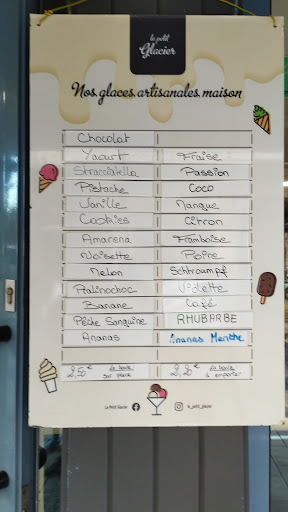 le petit
Glacier
Nos glaces artisanales maison
Chocolat
Yaourt Fraise
Stracciatella Passion
Pistache Coco
Vanille Mangue
Cookies Citron
Amarena Framboise
Noisette Poire
Melon Schtroumpf
Palinochoc Violette
Banane Café
Pêche Sanguine RHUBARBE
Ananas Ananas Menthe
2,50€ la boule sur place 2,20€ la boule à emporter
Le Petit Glacier le_petit_glacier